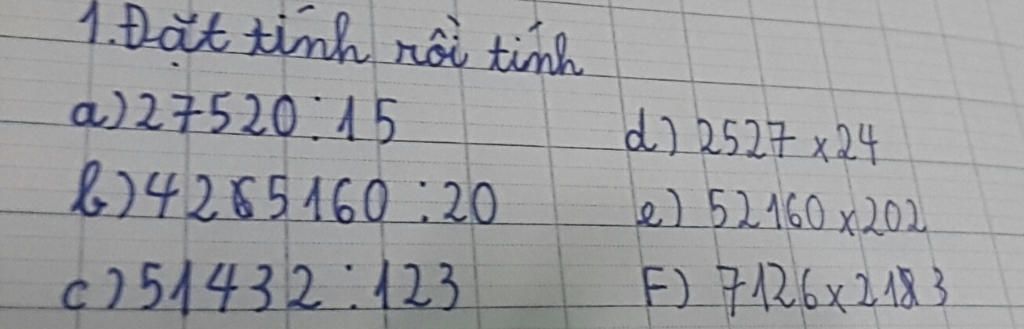 1. Đặt tính rồi tính
a) 27520 : 15
d) 2527 x 24
b) 4265160 : 20
e) 52160 x 202
c) 51432 : 123
F) 7126 x 2183